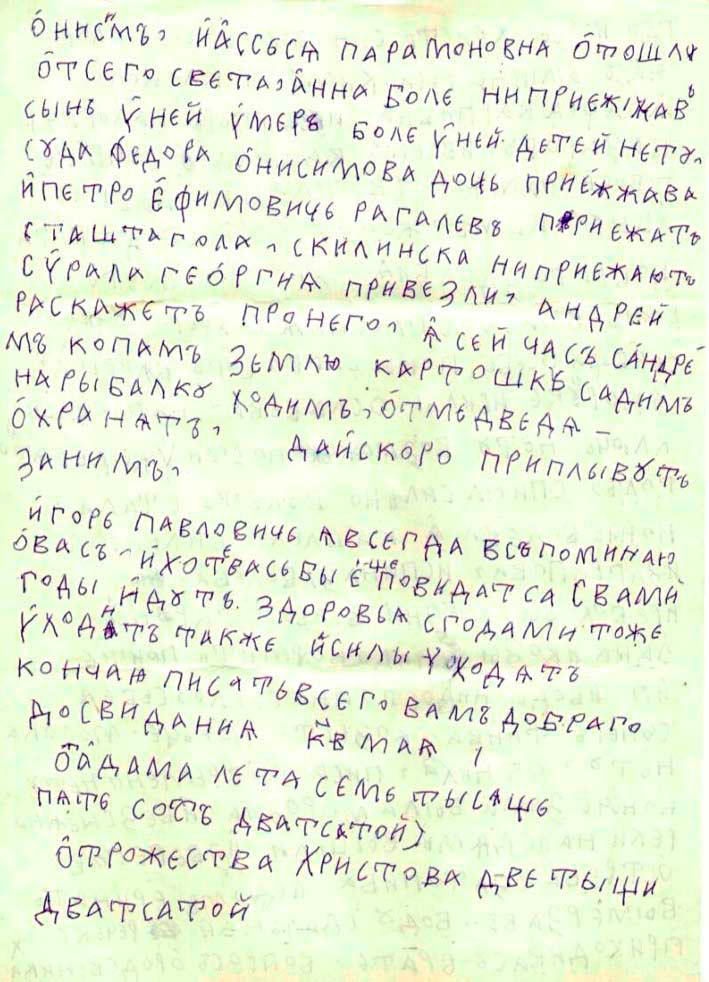 о́нисимъ, и҆а҆ссьсѧ парамоновна о҆тошлꙋ
о҆тсего света, а҆нна боле ниприежжавъ
сынъ ў ней ўмеръ боле ў ней детей нетꙋ,
сꙋда федора о҆нисимова дочь приежжава
и҆петро е҆фимовичь рагалевъ приежать
сташтагола, скилинска ниприежають
сўрала геѻ́ргиѧ привезли, андрей
раскажетъ пронего, а҆ сей часъ са́ндре́
мъ копамъ землю картошкъ садимъ
на рыбалкꙋ ходимъ, о҆тмедведѧ –
о҆хранѧтъ, дайскоро приплывꙋть
занимъ,
и҆горе павловичь ѧвсегда всъпоминаю
о́васъ и҆хотевасьбы е҆ще повидатса свами
годы и҆дꙋтъ. здоровьѧ сгодами тоже
ўходитъ также и҆силы ўходѧтъ
кончаю писатьвсего вамъ добраго
досвиданиѧ к҃в маѧ
ѿа҆дама лета семе тысѧще
пѧте сотъ дватсатой)
о҆трожества христова две тыщи
дватсатой